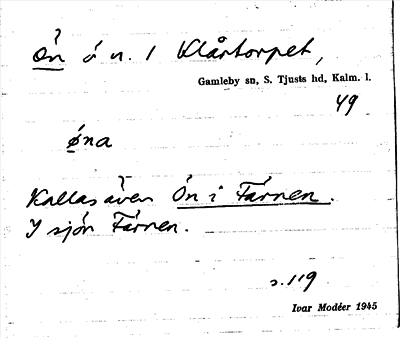 Ön ö n. 1 Klårtorpet,
Gamleby sn, S. Tjusts hd, Kalm. l.
49
øna
Kallas även Ön i Färnen.
I sjön Färnen.
s. 119
Ivar Modéer 1945